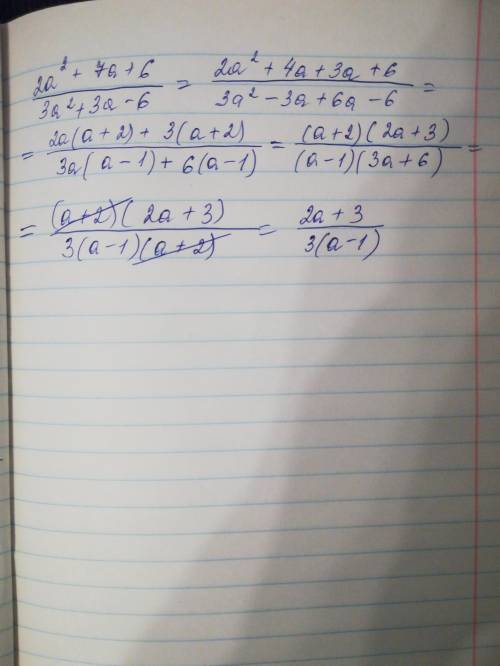 (2a² + 7a + 6)/(3a² + 3a - 6) = (2a² + 4a + 3a + 6)/(3a² - 3a + 6a - 6) =
= (2a(a + 2) + 3(a + 2))/(3a(a - 1) + 6(a - 1)) = ((a + 2)(2a + 3))/((a - 1)(3a + 6)) =
= ((a + 2)(2a + 3))/(3(a - 1)(a + 2)) = (2a + 3)/(3(a - 1))